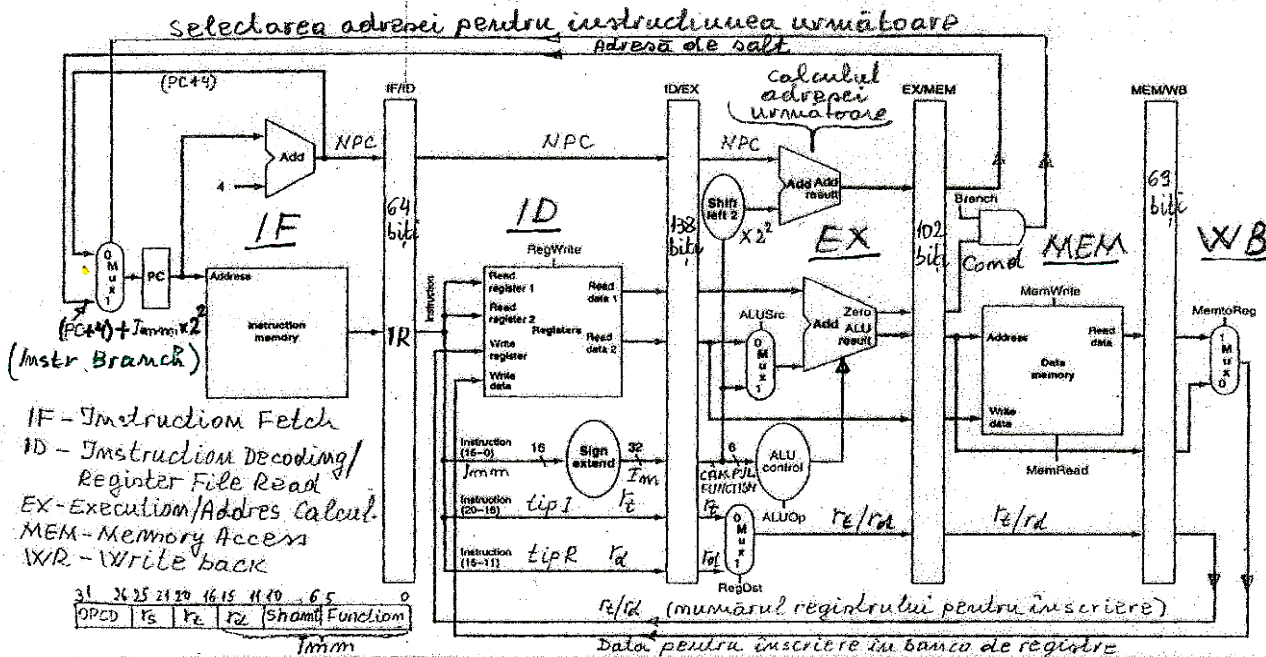 Selectarea adresei pentru instructiunea următoare
Adresă de salt
(PC+4)
IF/ID
ID/EX
calculul
adresei
următoare
EX/MEM
MEM/WB
Add
NPC
NPC
NPC
4
64
biți
IF
ID
138
biți
Shift
left 2
x2²
Add Add
result
EX
102
biți
Branch
Comd
MEM
69
biți
WB
0
Mux
1
PC
Address
Instruction
memory
IR
Instruction
RegWrite
Read
register 1
Read
register 2
Registers
Write
register
Write
data
Read
data 1
Read
data 2
ALUSrc
0
Mux
1
Zero
Add ALU
result
MemWrite
Address
Read
data
Data
memory
Write
data
MemRead
MemtoReg
1
Mux
0
(PC+4)+Imm×2²
(Instr. Branch)
IF - Instruction Fetch
ID - Instruction Decoding/
Register File Read
EX-Execution/Addres Calcul.
MEM-Memory Access
WR - Write back
Instruction
(15-0)
Imm
16
Sign
extend
32
Im
6
CÂMPUL
FUNCTION
ALU
control
ALUOp
Instruction
(20-16)
tip I
rt
rt
Instruction
(15-11)
tip R
rd
rd
0
Mux
1
RegDst
rt/rd
rt/rd
31 26 25 21 20 16 15 11 10 6 5 0
OPCD rs rt rd Shamt Function
Imm
rt/rd (numărul registrului pentru înscriere)
Data pentru înscriere in banco de registre